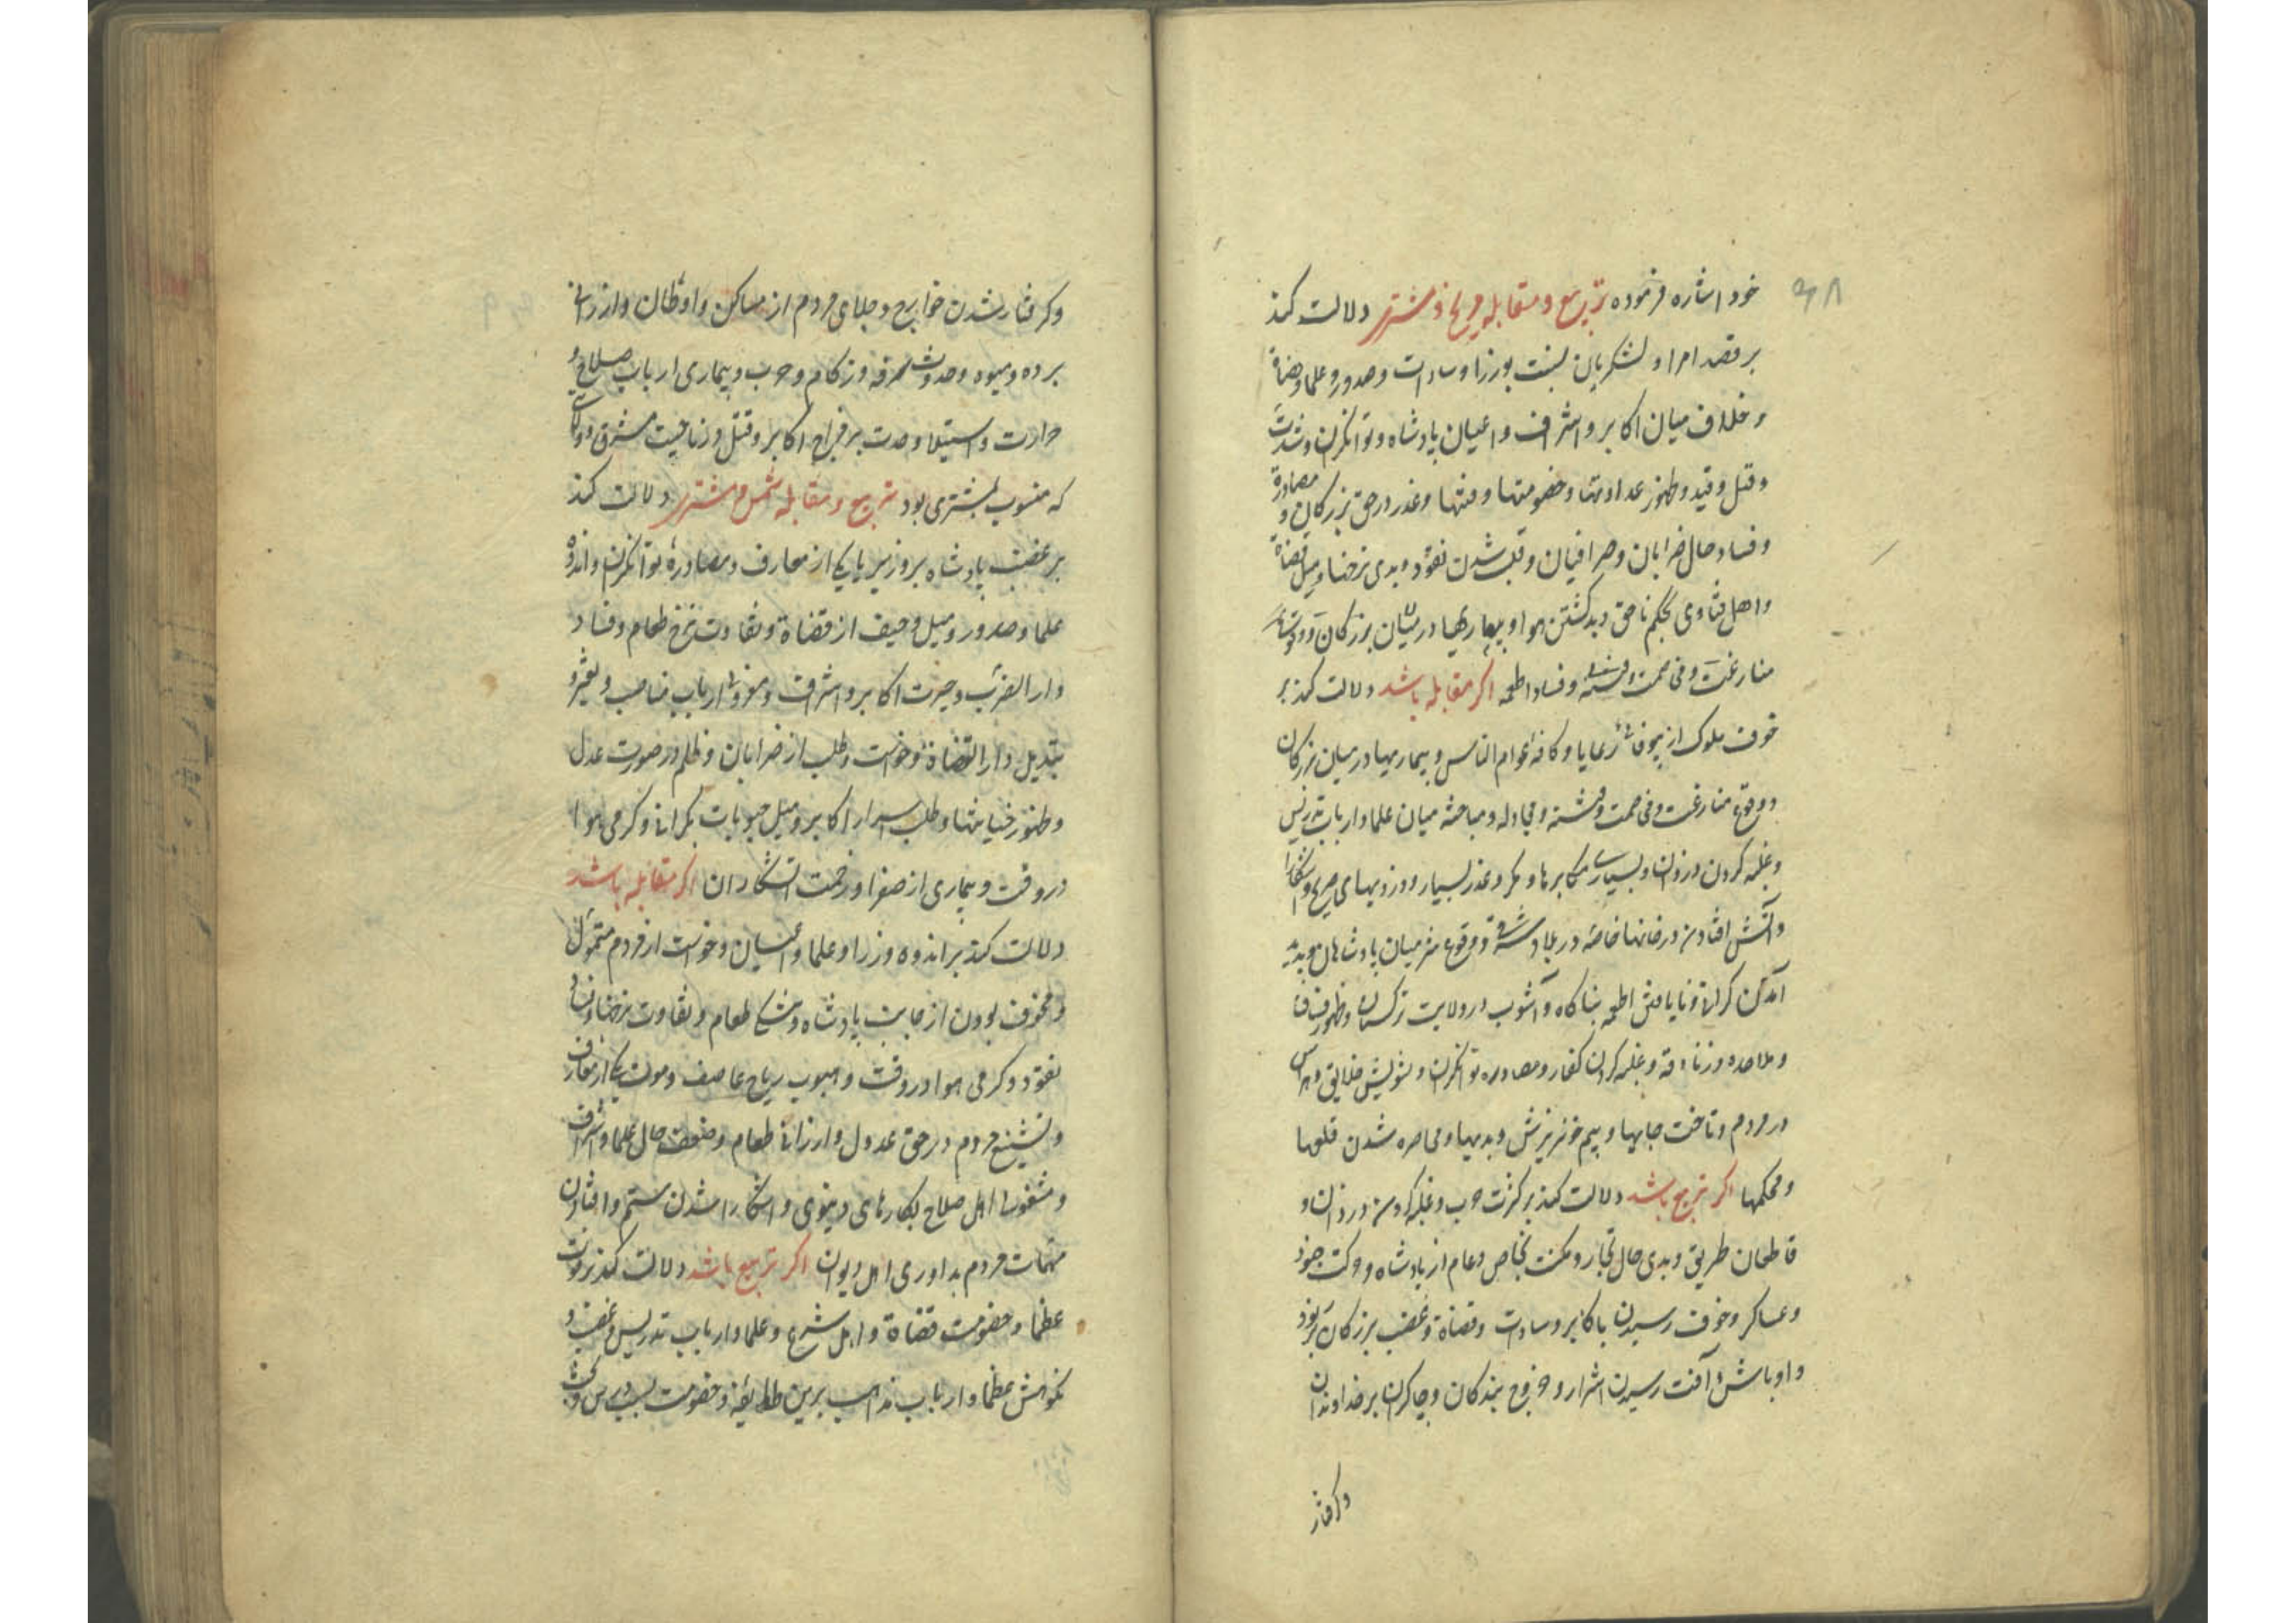 ۴۸
خود اشاره فرموده تربیع و مقابله مریخ و مشتری دلالت کند
بر قصد امرا و لشکریان بنسبت بوزرا و سادات و صدور و علما و قضاة
و خلاف میان اکابر و اشراف و اعیان پادشاه و توانکران و شدت
و قتل و قید و ظهور عداوتها و خصومتها و فتنها و غدر در حق بزرکان و مصادرة
و فساد حال ضرابان و صرافیان و قلب شدن نقود و بدی نرخها و میل قضاة
و اهل فتاوی بحکم ناحق و بد کشتن هوا و بیماریها در میان بزرکان و وقوع
منازعت و فساد اطعمه اکر مقابله باشد دلالت کند بر
خوف ملوک از رعایا و کافه عوام الناس و بیماریها در میان بزرکان
و وقوع منازعت و مخاصمت و فتنه و مجادله و مباحثه میان علما و ارباب تدریس
و غلبه کردن دزدان و بسیاری مکابرها و مکر و غدر بسیار و دزدیهای صریح و آشکارا
و آتش افتادن در خانها خاصه در بلاد و وقوع شر میان پادشاهان و پدید
آمدن کرانی و نایافتن اطعمه بناکاه و آشوب در ولایت ترکستان و ظهور
و ملاحده و زنادقه و غلبه کردن کفار و مصادره توانکران و تشویش خلایق و هراس
در مردم و تاخت جایها و بیم خونریزش و بدیها و محاصره شدن قلعها
و محکمها اکر تربیع باشد دلالت کند بر کثرت حرب و غلبه کردن دزدان و
قاطعان طریق و بدی حال تجار و مکنت بخاص و عام از پادشاه و حرکت جنود
و عساکر و خوف رسیدن باکابر و سادات و قضاة و غضب بزرکان بر
و اوباش و آفت رسیدن اشرار و خروج بندکان و چاکران بر خداوندان
و کرفتار
و کرفتار شدن خوارج و جلای مردم از مساکن و اوطان و ارزانی
برده و میوه و حدوث محرقه و زکام و حرب و بیماری ارباب صلاح و
حرارت و استیلا و حدت بر مزاج اکابر و قتل در ناحیت مشرق و
که منسوب بمشتری بود تربیع و مقابله شمس و مشتری دلالت کند
بر غضب پادشاه بر وزیر یا یکی از معارف و مصادره توانکران و اندوه
علما و صدور و میل و حیف از قضاة و تفاوت نرخ طعام و فساد
دار الضرب و حیرت اکابر و اشراف و ارباب مناصب و تغیر و
تبدیل دار القضاة و خواست و طلب از ضرابان و ظلم در صورت عدل
و ظهور خیانتها و طلب اسرار اکابر و میل حبوبات بکرانی و کرمی هوا
در وقت و بیماری از صفرا و زحمت آشکار ان اکر مقابله باشد
دلالت کند بر اندوه وزرا و علما و اعیان و خواست از مردم متمول
و مخوف بودن از جانب پادشاه و تنکی طعام و تفاوت نرخها و
نقود و کرمی هوا در وقت و هبوب ریاح عاصف و موت یکی از معارف
و تشنیع مردم در حق عدول و ارزانی طعام و ضعف حال علما و اشراف
و مشغولی اهل صلاح بکارهای دنیوی و آشکارا شدن ستم و افتادن
مهمات مردم بداوری اهل دیوان اکر تربیع باشد دلالت کند بر موت
عظما و خصومت قضاة و اهل شرع و علما و ارباب تدریس و غضب و
نکوهش عظما و ارباب مذاهب برین طایفه و خصومت بسبب درس و بحث